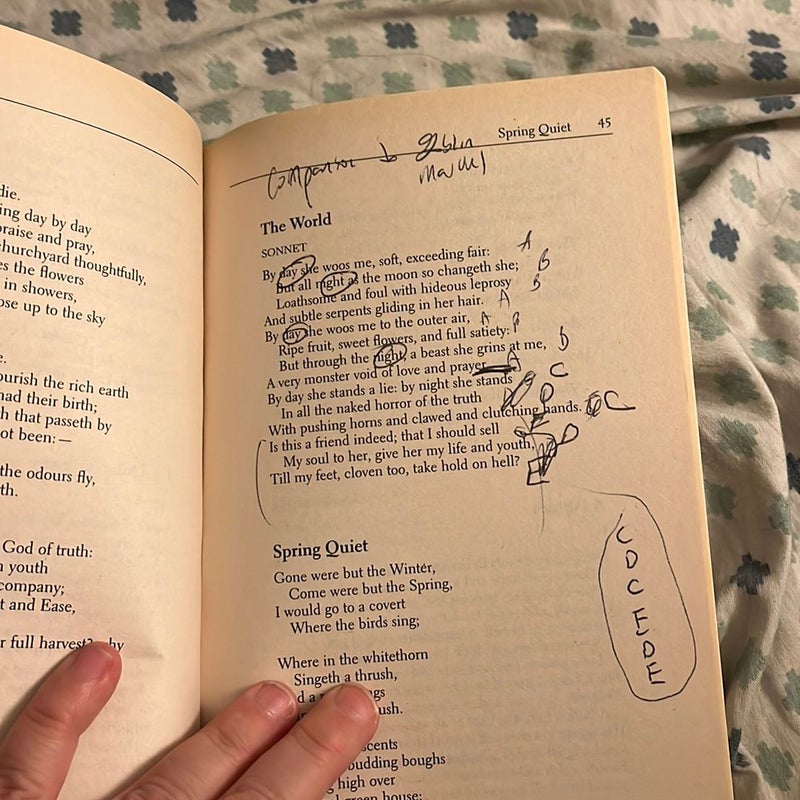 die.
ing day by day
praise and pray,
churchyard thoughtfully,
es the flowers
in showers,
ose up to the sky
e.
ourish the rich earth
had their birth;
th that passeth by
ot been:—
the odours fly,
th.
God of truth:
n youth
company;
t and Ease,
r full harvest? hy
Spring Quiet 45
Comparison to Goblin
Market
The World
SONNET
By day she woos me, soft, exceeding fair: A
But all night as the moon so changeth she; B
Loathsome and foul with hideous leprosy B
And subtle serpents gliding in her hair. A
By day she woos me to the outer air, A
Ripe fruit, sweet flowers, and full satiety: B
But through the night, a beast she grins at me, B
A very monster void of love and prayer. A
By day she stands a lie: by night she stands C
In all the naked horror of the truth D
With pushing horns and clawed and clutching hands. C
Is this a friend indeed; that I should sell E
My soul to her, give her my life and youth, D
Till my feet, cloven too, take hold on hell? E
C
D
C
E
D
E
Spring Quiet
Gone were but the Winter,
Come were but the Spring,
I would go to a covert
Where the birds sing;
Where in the whitethorn
Singeth a thrush,
d a ngs
ush.
scents
budding boughs
g high over
green house: